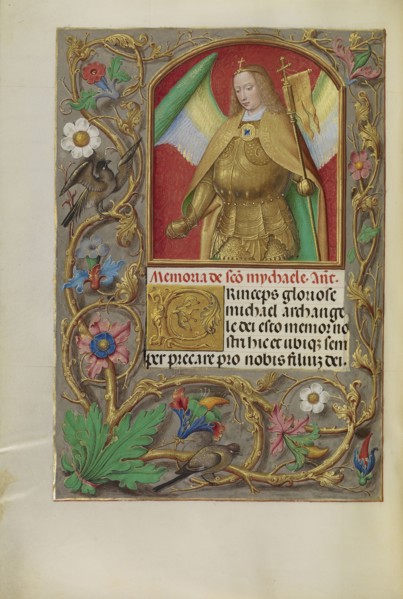 Memoria de sco mychaele. Ant.
PRinceps gloriose
michael archange
le dei esto memor no
stri hic et ubiqz sem
per precare pro nobis filiuz dei.